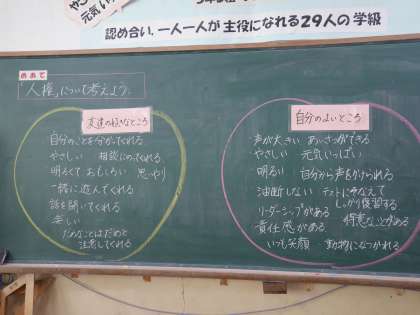 元気い
認め合い、一人一人が 主役になれる29人の学級
めあて
「人権」について考えよう。
友達の好きなところ
自分のことを分かってくれる
やさしい 相談にのってくれる
明るくて おもしろい 思いやり
一緒に遊んでくれる
話を聞いてくれる
楽しい
だめなことはだめと
注意してくれる
自分のよいところ
声が大きい あいさつができる
やさしい 元気いっぱい
明るい 自分から声をかけられる
油断しない テストにそなえて
しっかり復習する
リーダーシップがある 得意なことがある
責任感がある
いつも笑顔 動物になつかれる